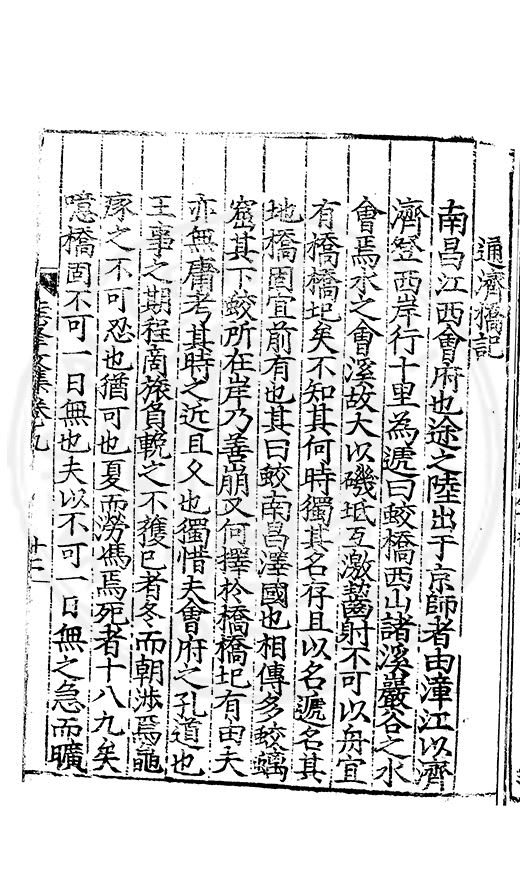 通濟橋記
南昌江西會府也途之陸出于京師者由漳江以濟
濟登西岸行十里為遞曰蛟橋西山諸溪巖谷之水
會焉水之會溪故大以磯坻互激齧射不可以舟宜
有橋橋圮矣不知其何時獨其名存且以名遞名其
地橋固宜前有也其曰蛟南昌澤國也相傳多蛟螭
窟其下蛟所在岸乃善崩又何擇於橋橋圮有由夫
亦無庸考其時之近且久也獨惜夫會府之孔道也
王事之期程商旅負輗之不獲已者冬而朝涉焉龜
瘃之不可忍也猶可也夏而澇馮焉死者十八九矣
噫橋固不可一日無也夫以不可一日無之急而曠
集卷九